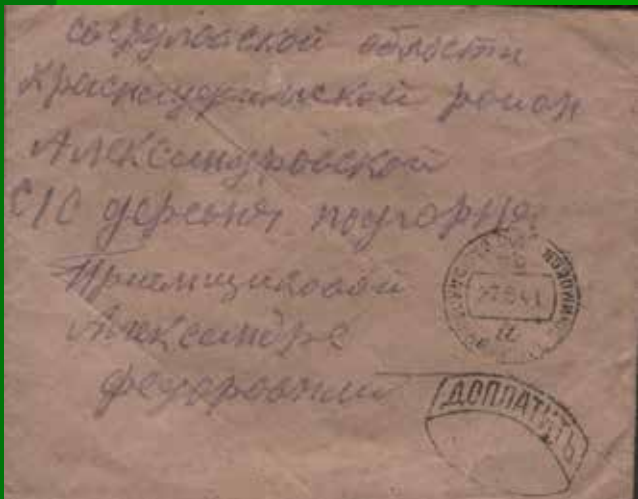 свердловской области
Красноуфимской район
Александровской
С/С деревня подгорная
Приемщиковой
Александре
федоровны
ДОПЛАТИТЬ